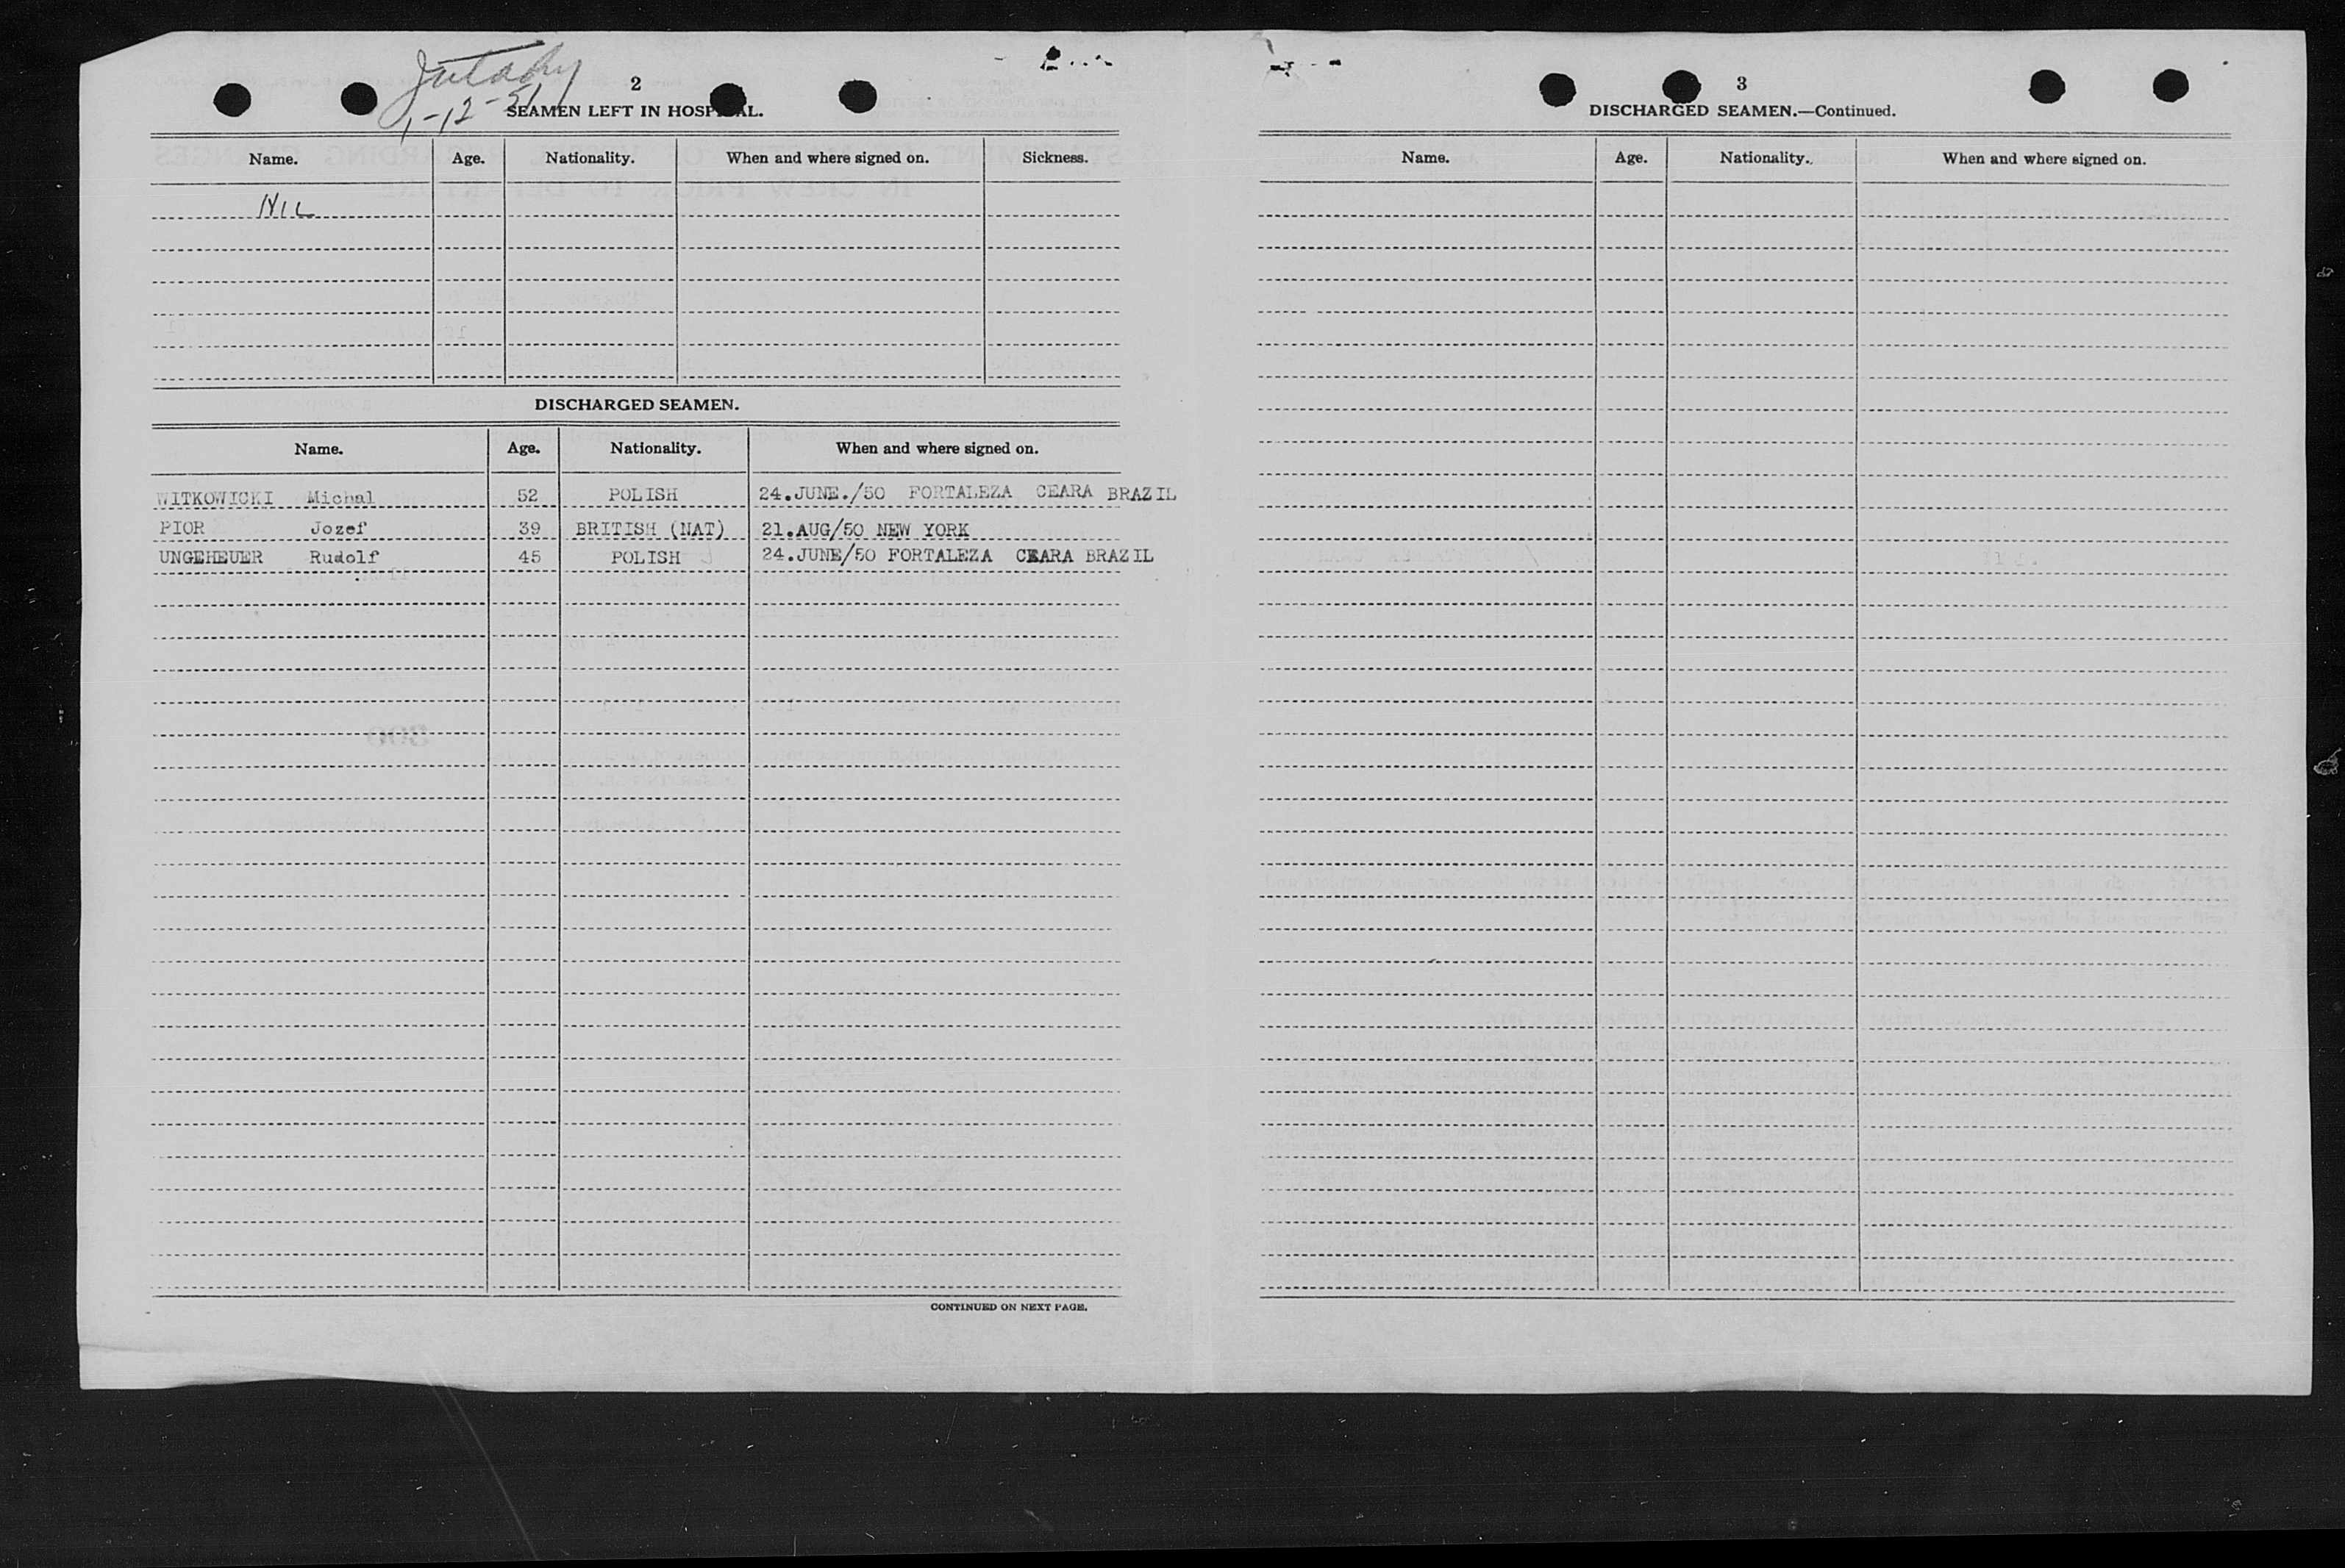 Jutahy
1-12-51
2
SEAMEN LEFT IN HOSPITAL.
Name. Age. Nationality. When and where signed on. Sickness.
NIL
DISCHARGED SEAMEN.
Name. Age. Nationality. When and where signed on.
WITKOWICKI Michal 52 POLISH 24.JUNE./50 FORTALEZA CEARA BRAZIL
PIOR Jozef 39 BRITISH (NAT) 21.AUG/50 NEW YORK
UNGEHEUER Rudolf 45 POLISH 24.JUNE/50 FORTALEZA CEARA BRAZIL
CONTINUED ON NEXT PAGE.
3
DISCHARGED SEAMEN.—Continued.
Name. Age. Nationality. When and where signed on.